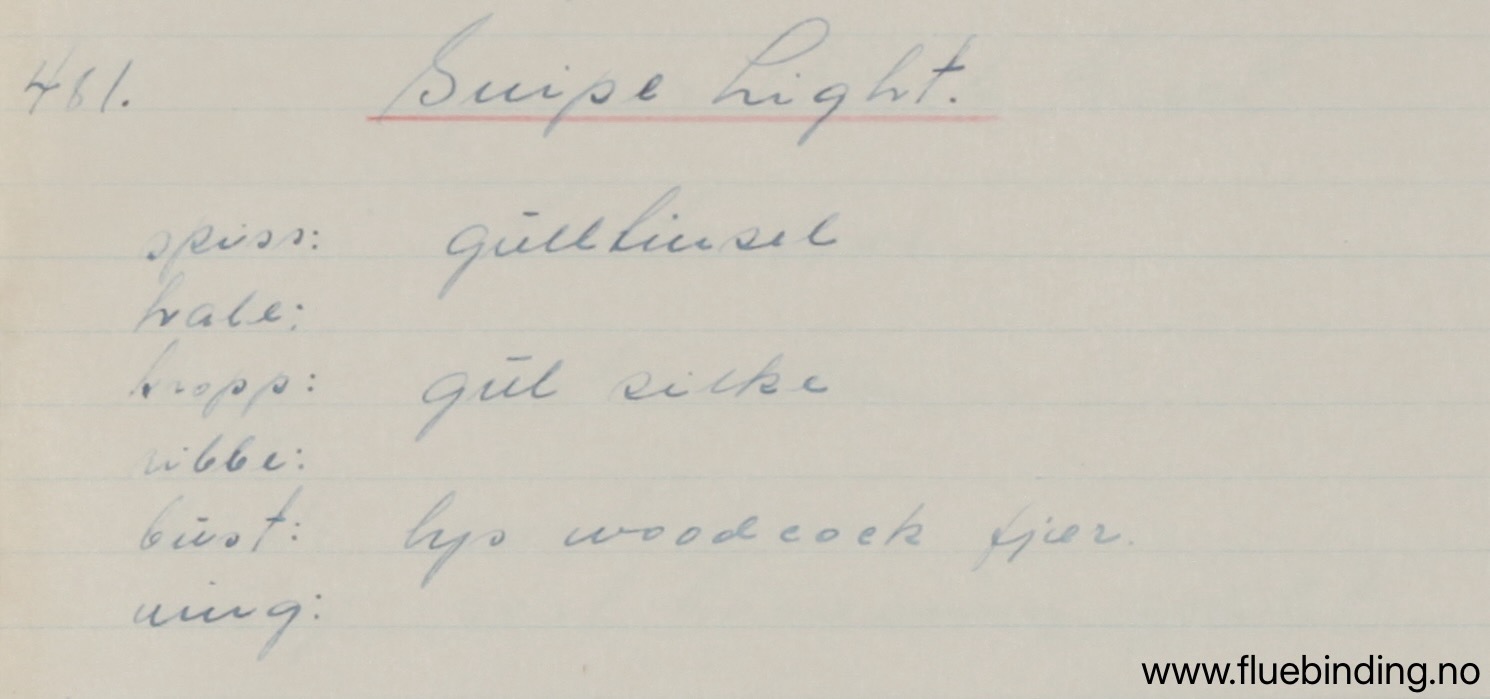 461. Snipe Light.
spiss: gulltinsel
hale:
kropp: gul silke
ribbe:
bust: lys woodcock fjær.
ving:
www.fluebinding.no